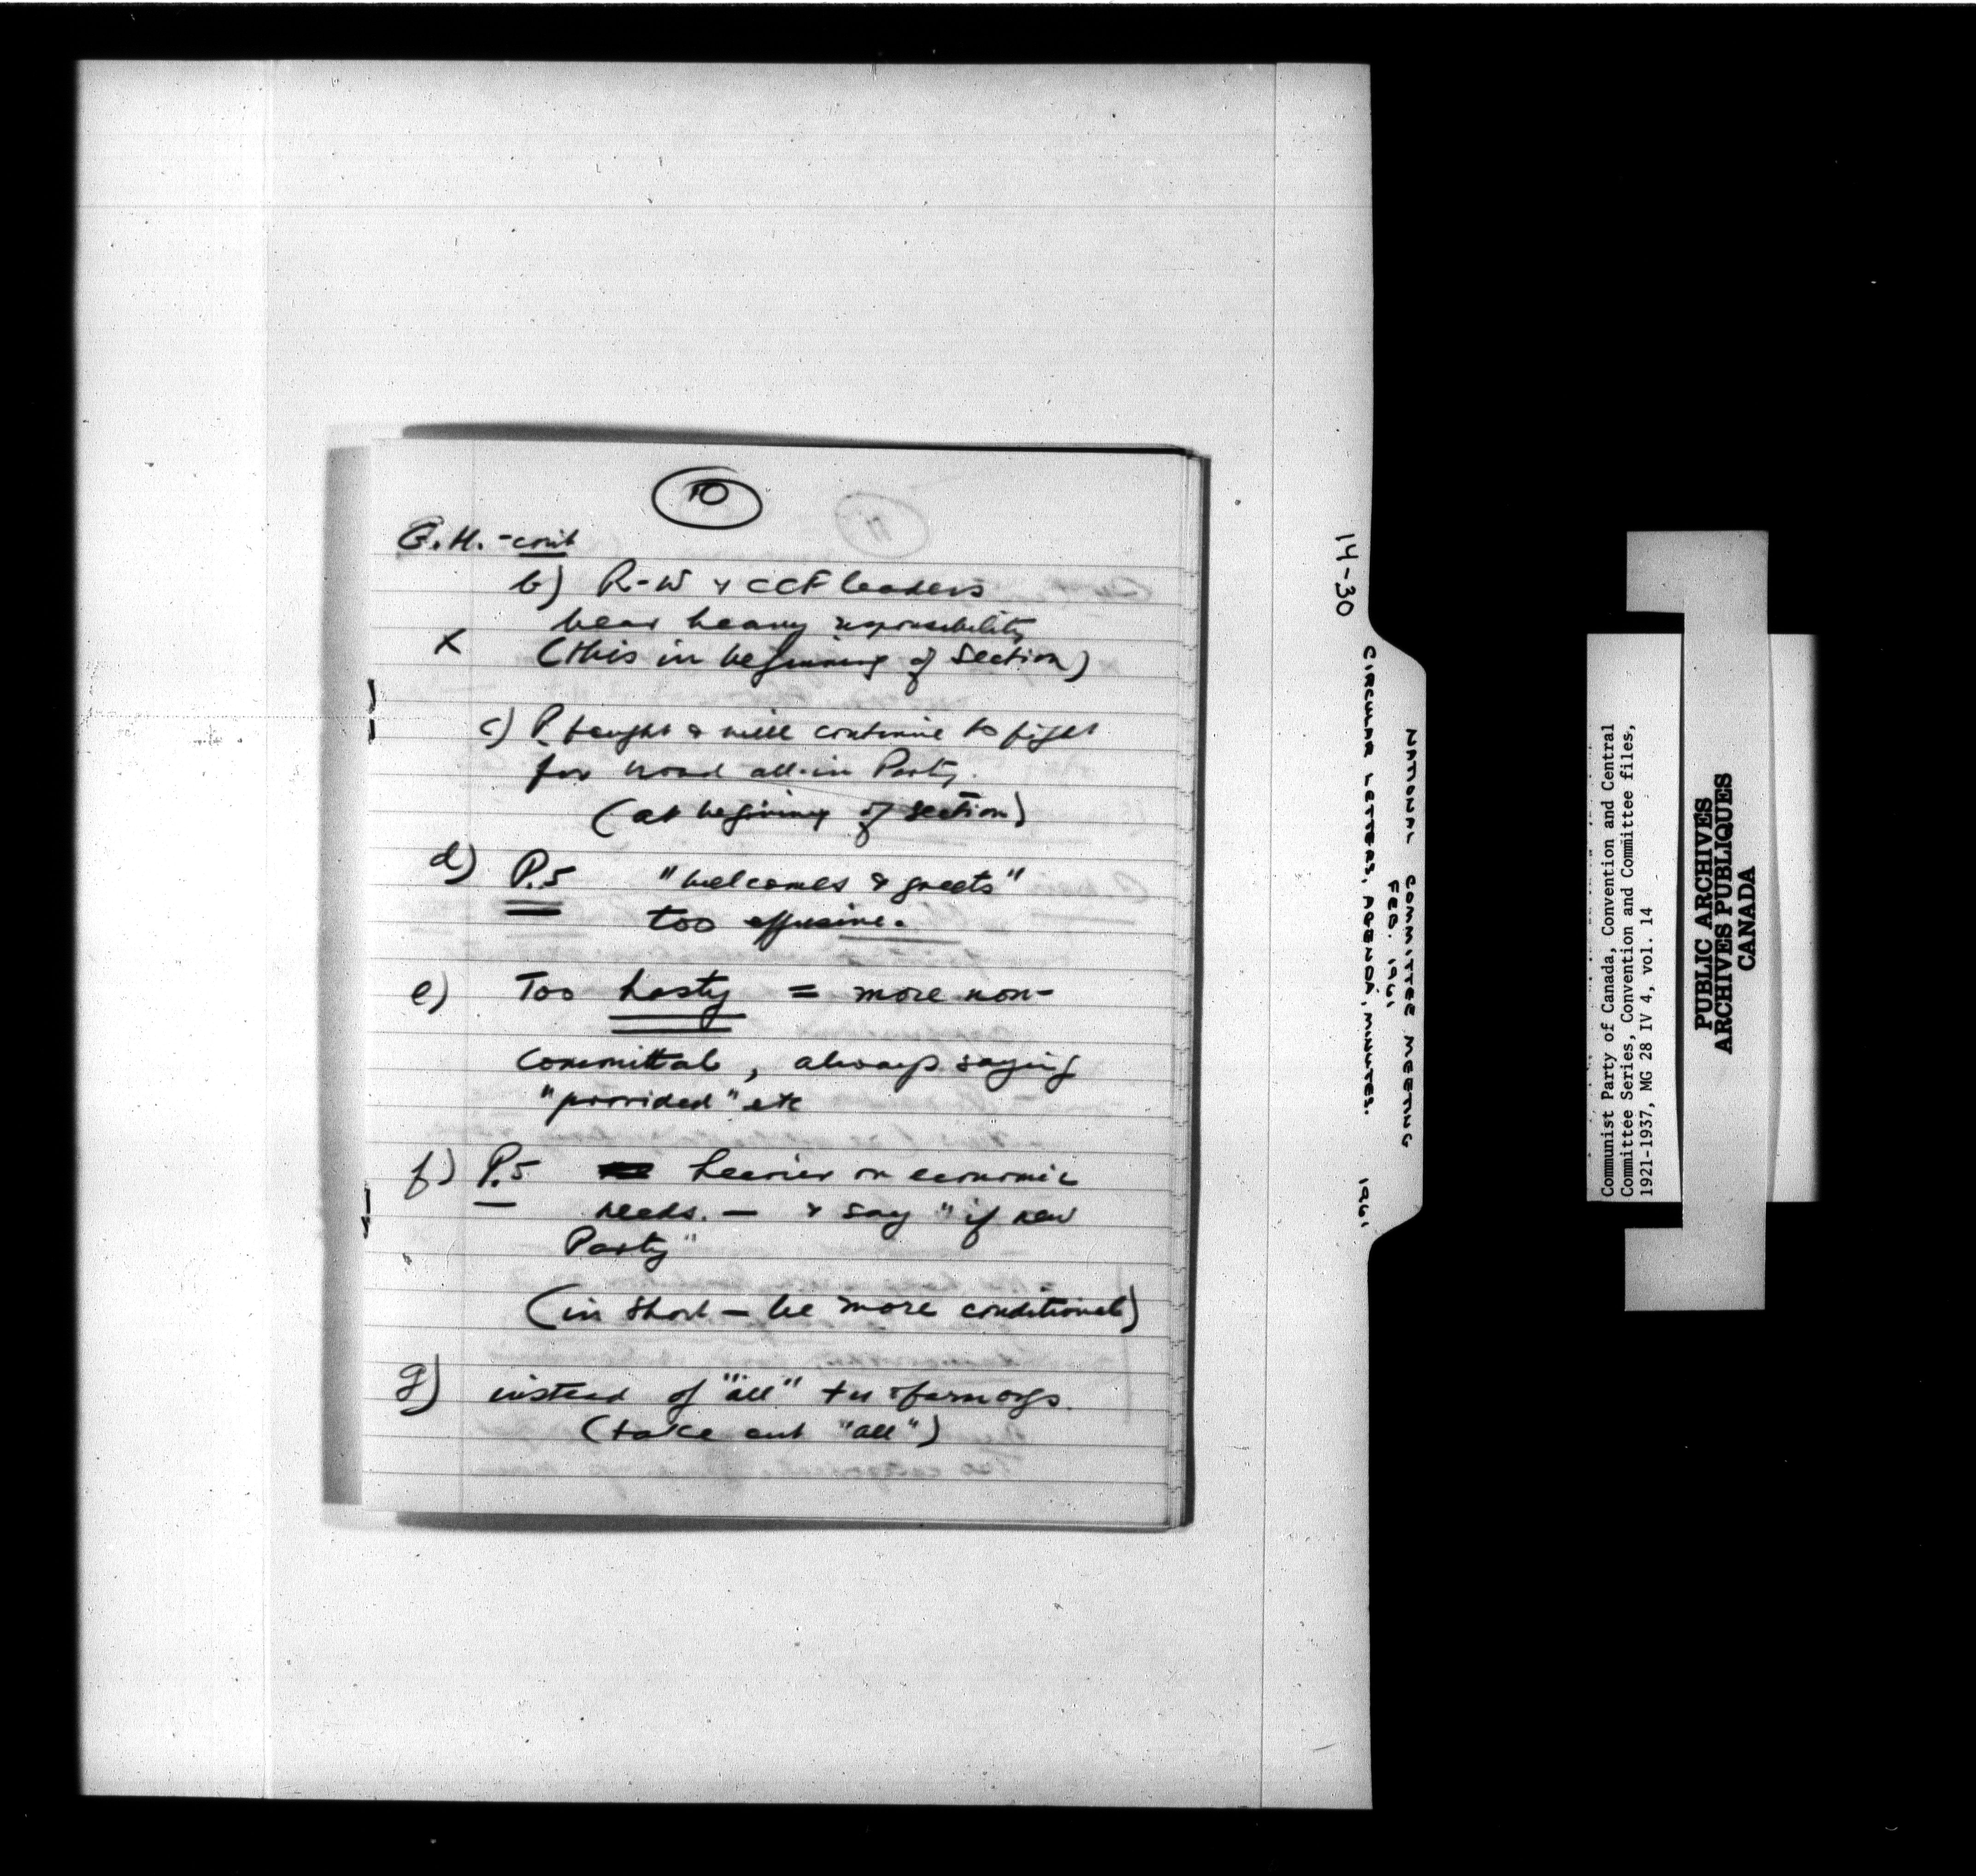 10
G.H. - cont
b) R-W & CCF leaders
bear heavy responsibility
x (this in beginning of section)
c) P. fought & will continue to fight
for broad all-in Party.
(at begining of section)
d) P.5 "welcomes & greets"
too effusive.
e) Too hasty = more non-
committal, always saying
"provided" etc
f) P.5 heavier on economic
needs. — & say "if new
Party"
(in short — be more conditional)
g) instead of "all" tu & farm orgs.
(take out "all")
14-30
NATIONAL COMMITTEE MEETING
FEB. 1961
CIRCULAR LETTERS, AGENDA, MINUTES. 1961
Communist Party of Canada, Convention and Central
Committee Series, Convention and Committee files,
1921-1937, MG 28 IV 4, vol. 14
PUBLIC ARCHIVES
ARCHIVES PUBLIQUES
CANADA